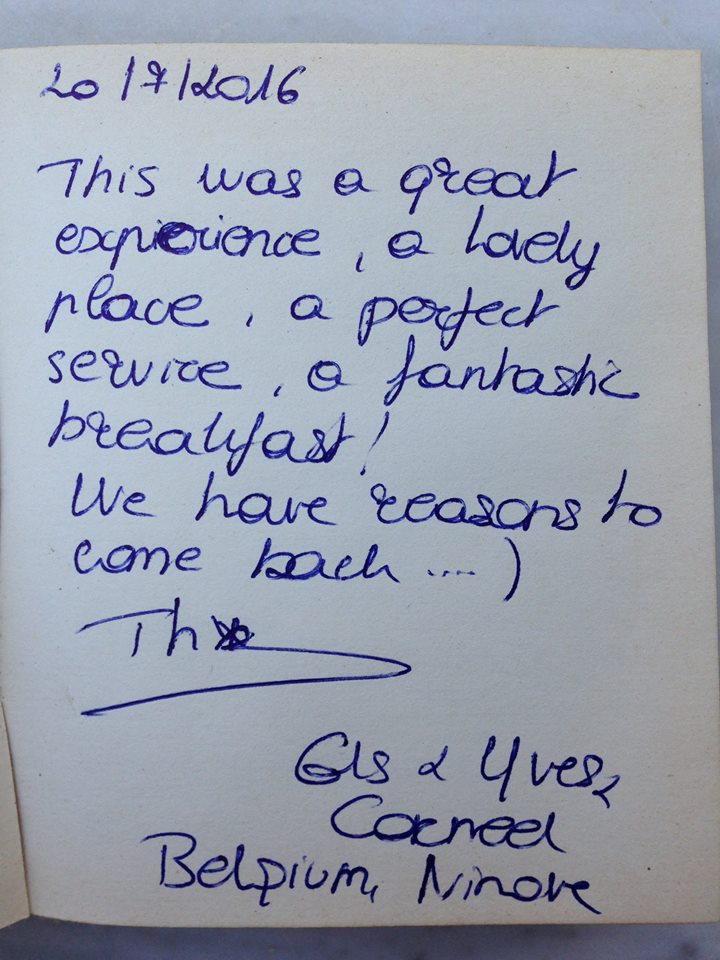 20/7/2016
This was a great
experience, a lovely
place, a perfect
service, a fantastic
breakfast!
We have reasons to
come back ....)
Thx
Els & Yves,
Corneel
Belgium, Ninove